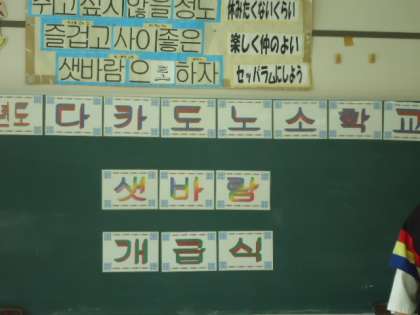 쉬고 싶지 않을 정도
즐겁고 사이좋은
샛바람으로 하자
休みたくないくらい
楽しく仲のよい
セッパラムにしよう
년도 다카도노소학교
샛바람
개급식